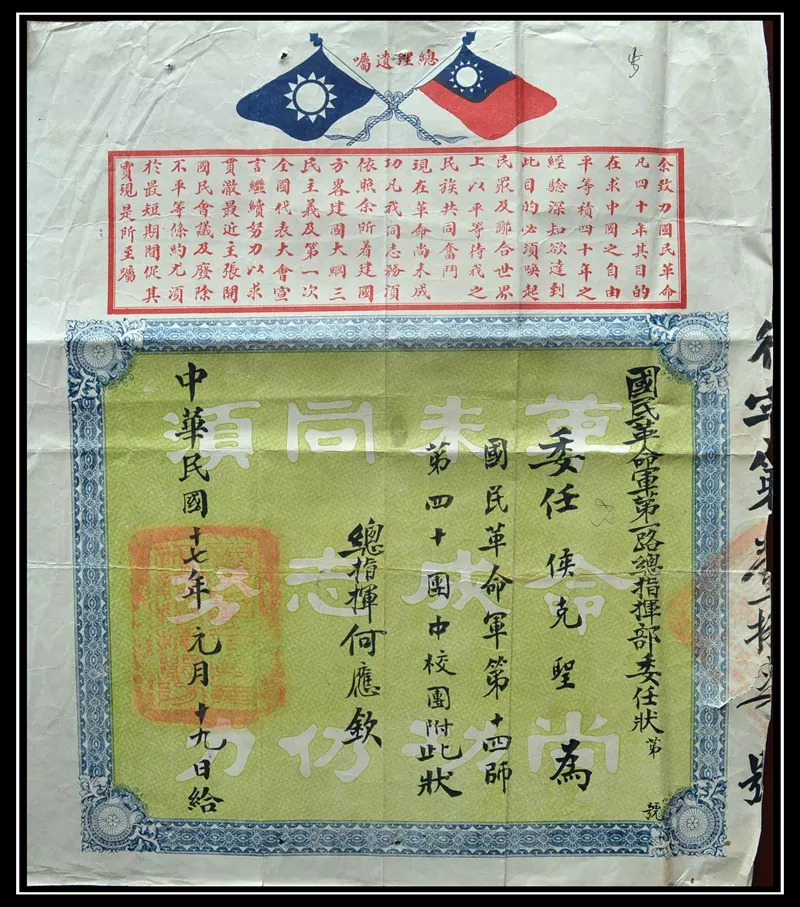 總理遺囑
余致力國民革命
凡四十年其目的
在求中國之自由
平等積四十年之
經驗深知欲達到
此目的必須喚起
民眾及聯合世界
上以平等待我之
民族共同奮鬥
現在革命尚未成
功凡我同志務須
依照余所着建國
方畧建國大綱三
民主義及第一次
全國代表大會宣
言繼續努力以求
貫澈最近主張開
國民會議及廢除
不平等條約尤須
於最短期間促其
實現是所至囑
國民革命軍第一路總指揮部委任狀第 號
委任侯克聖為
國民革命軍第十四師
第四十團中校團附此狀
總指揮何應欽
中華民國十七年元月十九日給
革命尚
未成功
同志仍
須努力
字第 號